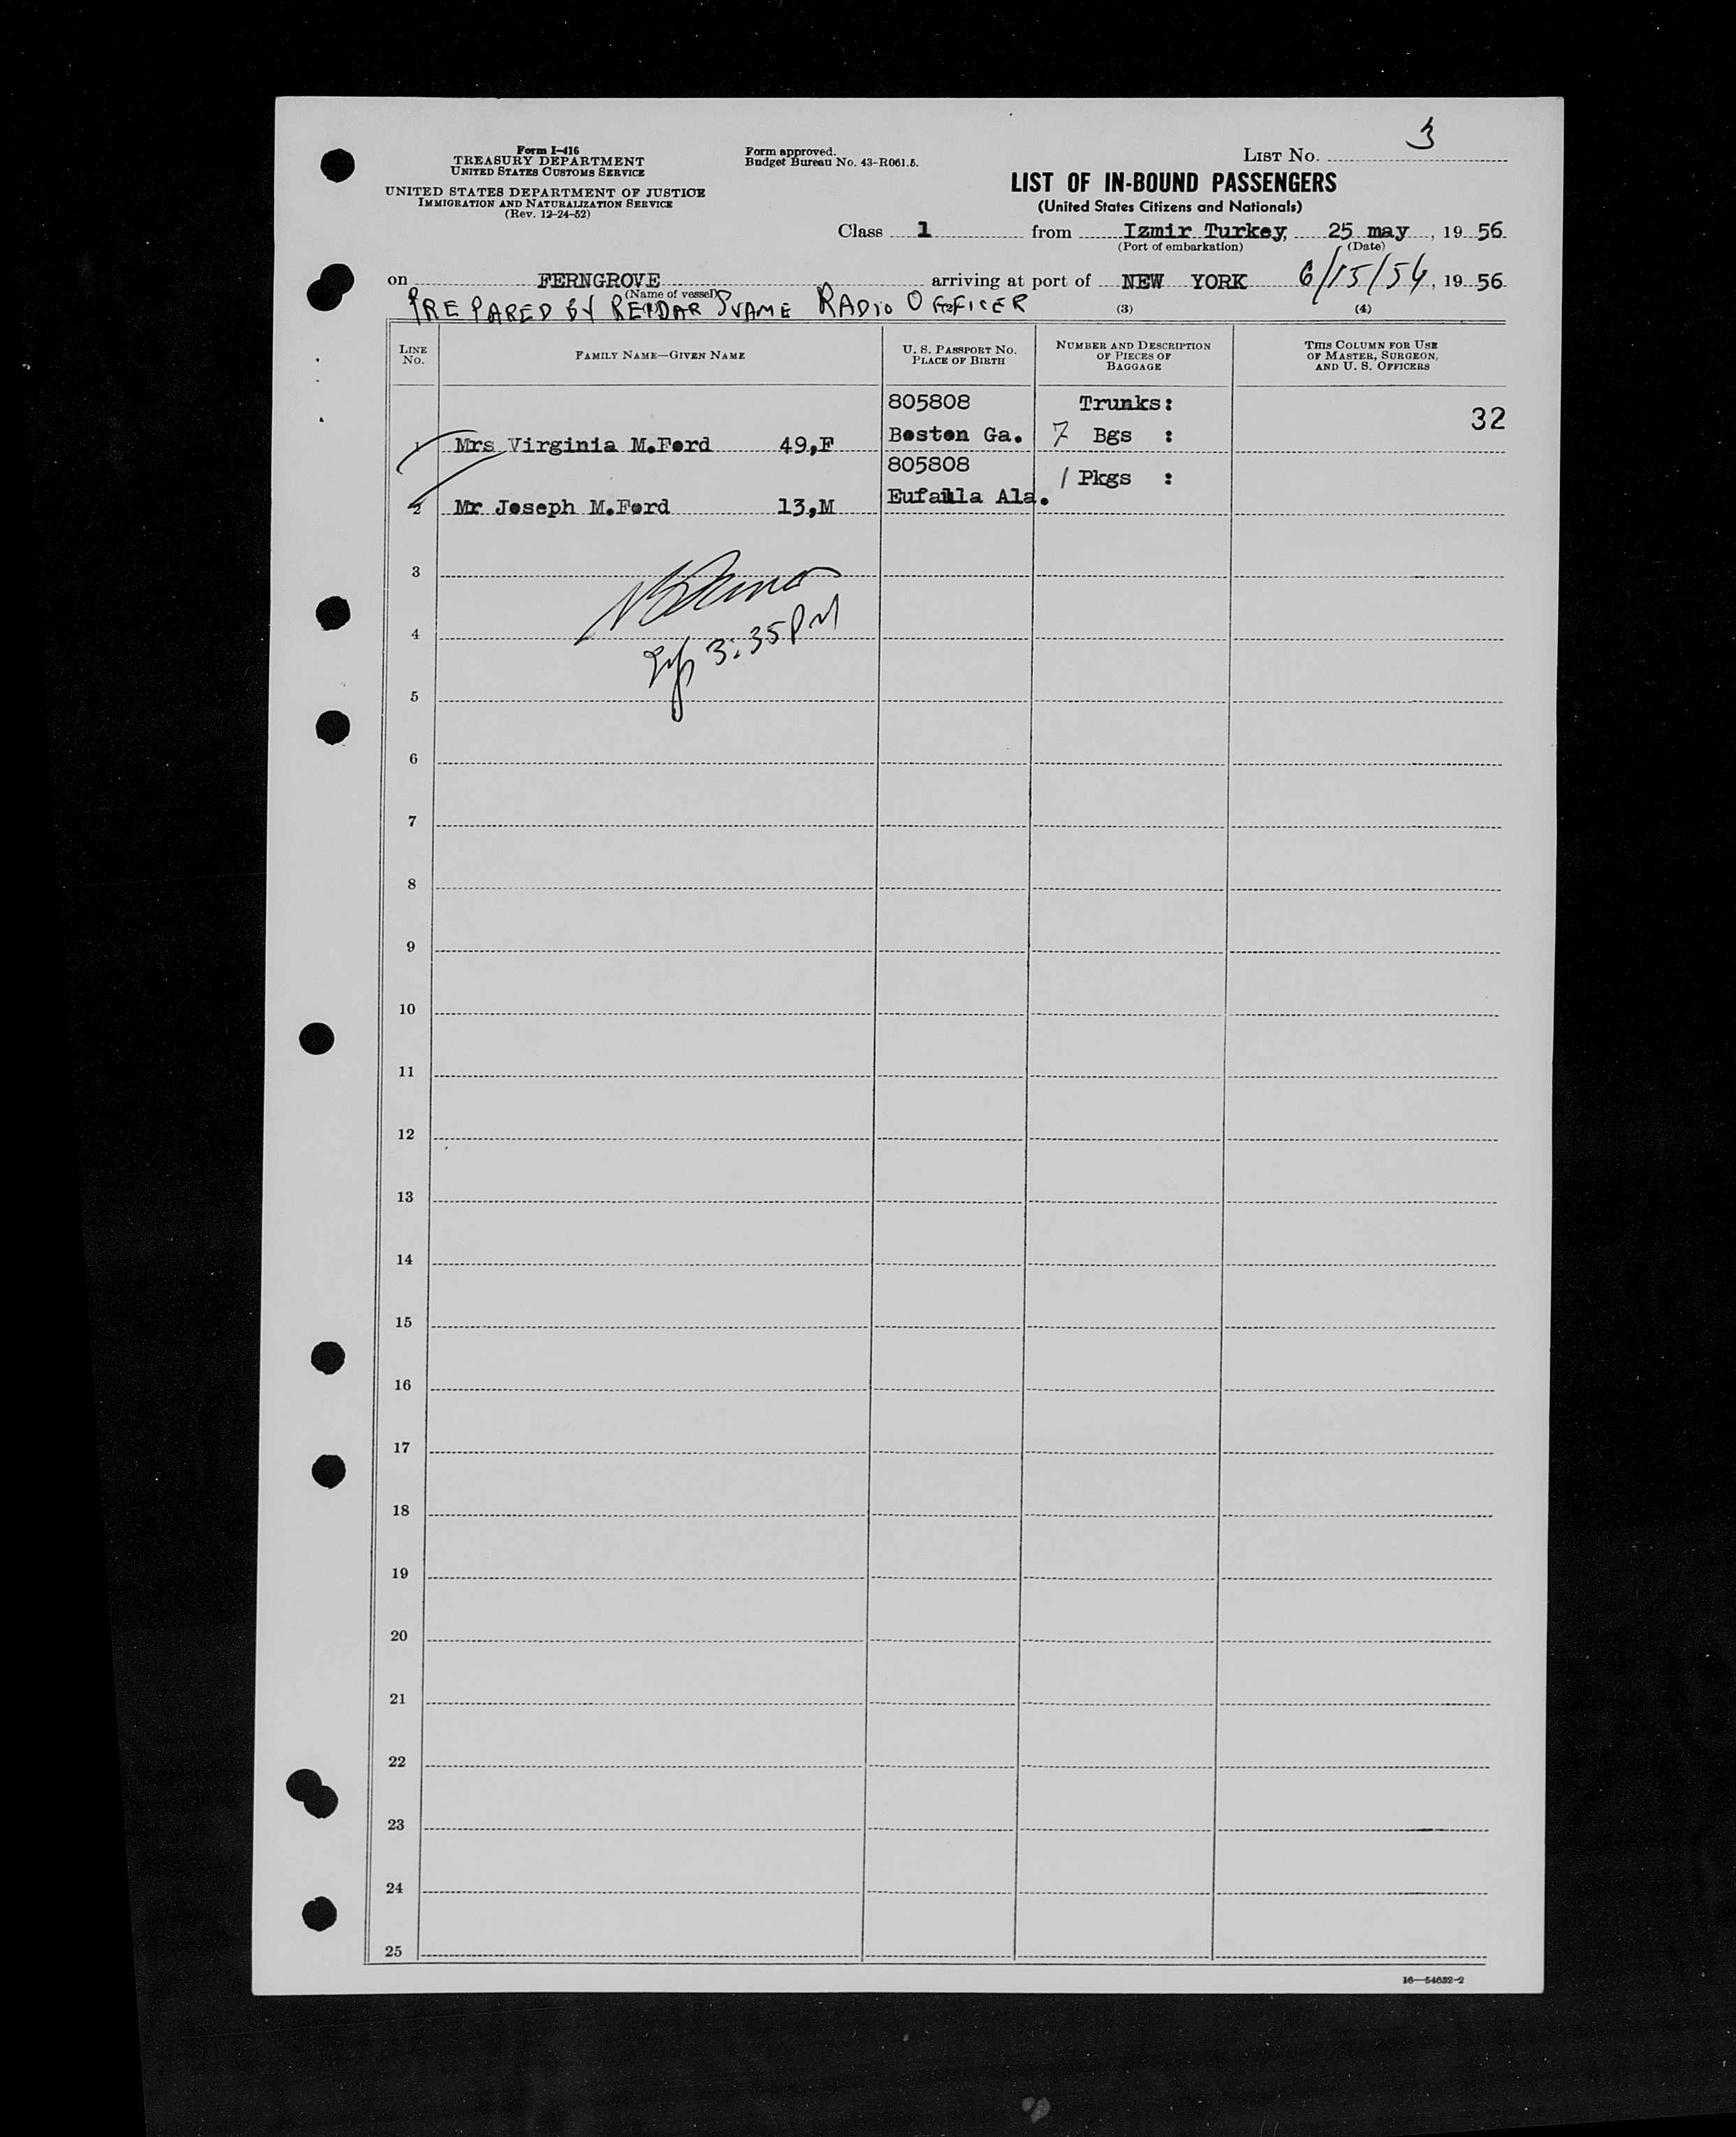 3
Form I-416
TREASURY DEPARTMENT
UNITED STATES CUSTOMS SERVICE
UNITED STATES DEPARTMENT OF JUSTICE
IMMIGRATION AND NATURALIZATION SERVICE
(Rev. 12-24-52)
Form approved.
Budget Bureau No. 43-R061.5.
LIST NO.
LIST OF IN-BOUND PASSENGERS
(United States Citizens and Nationals)
Class 1 from Izmir Turkey, 25 may, 1956
(Port of embarkation) (Date)
on FERNGROVE arriving at port of NEW YORK 6/15/56, 1956
(Name of vessel)
PREPARED BY REIDAR RADIO OFFICER
(3) (4)
LINE No. FAMILY NAME—GIVEN NAME U. S. PASSPORT NO. PLACE OF BIRTH NUMBER AND DESCRIPTION OF PIECES OF BAGGAGE THIS COLUMN FOR USE OF MASTER, SURGEON, AND U. S. OFFICERS
805808 Trunks: 32
1 Mrs Virginia M.Ford 49,F Boston Ga. 7 Bgs :
805808 1 Pkgs :
2 Mr Joseph M.Ford 13,M Eufaula Ala.
3
4
3:35 PM
5
6
7
8
9
10
11
12
13
14
15
16
17
18
19
20
21
22
23
24
25
16—54632-2